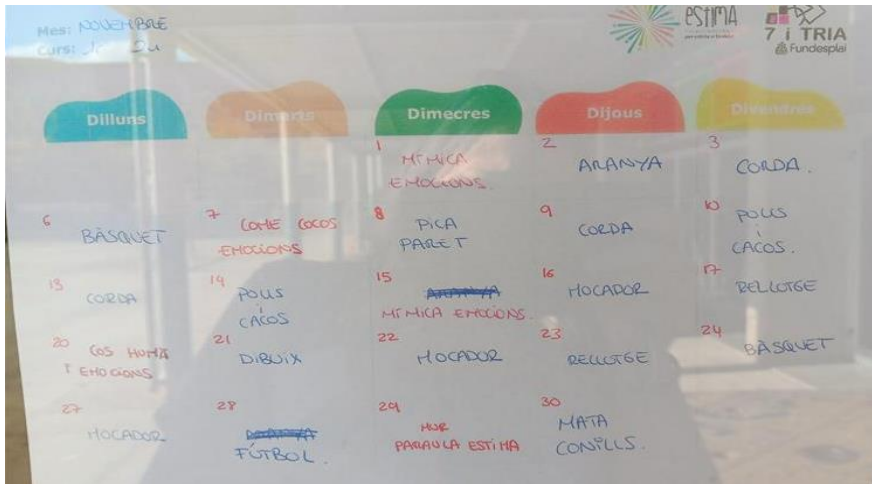 Mes: NOVEMBRE
Curs: 1r 2n
estima
7 i TRIA
Fundesplai
Dilluns
Dimarts
Dimecres
Dijous
Divendres
1
MÍMICA
EMOCIONS.
2
ARANYA
3
CORDA.
6
BÀSQUET
7
COME COCOS
EMOCIONS
8
PICA
PARET
9
CORDA
10
POLIS
i
CACOS.
13
CORDA
14
POLIS
i
CACOS
15
MÍMICA EMOCIONS.
16
MOCADOR
17
RELLOTGE
20
COS HUMÀ
I EMOCIONS
21
DIBUIX
22
MOCADOR
23
RELLOTGE
24
BÀSQUET
27
MOCADOR
28
FÚTBOL.
29
MUR
PARAULA ESTIMA
30
MATA
CONILLS.